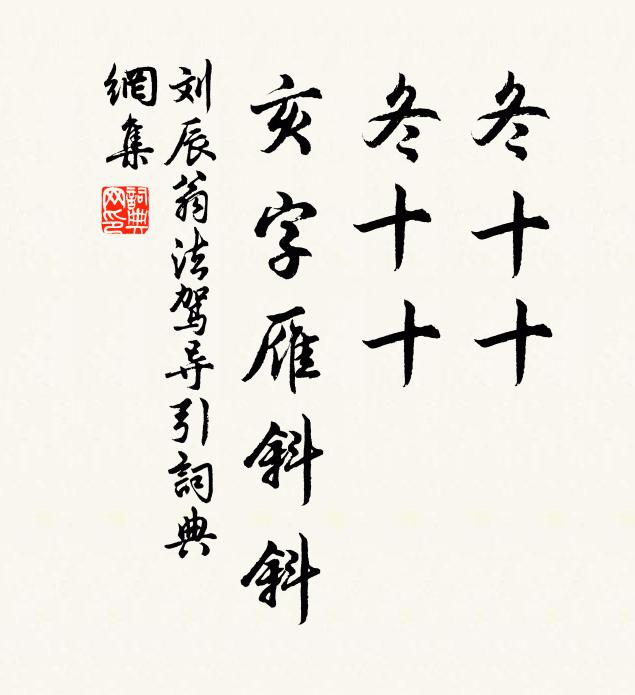 冬十十
冬十十
亥字雁斜斜
刘辰翁法驾导引詞典
網集
詞典网印